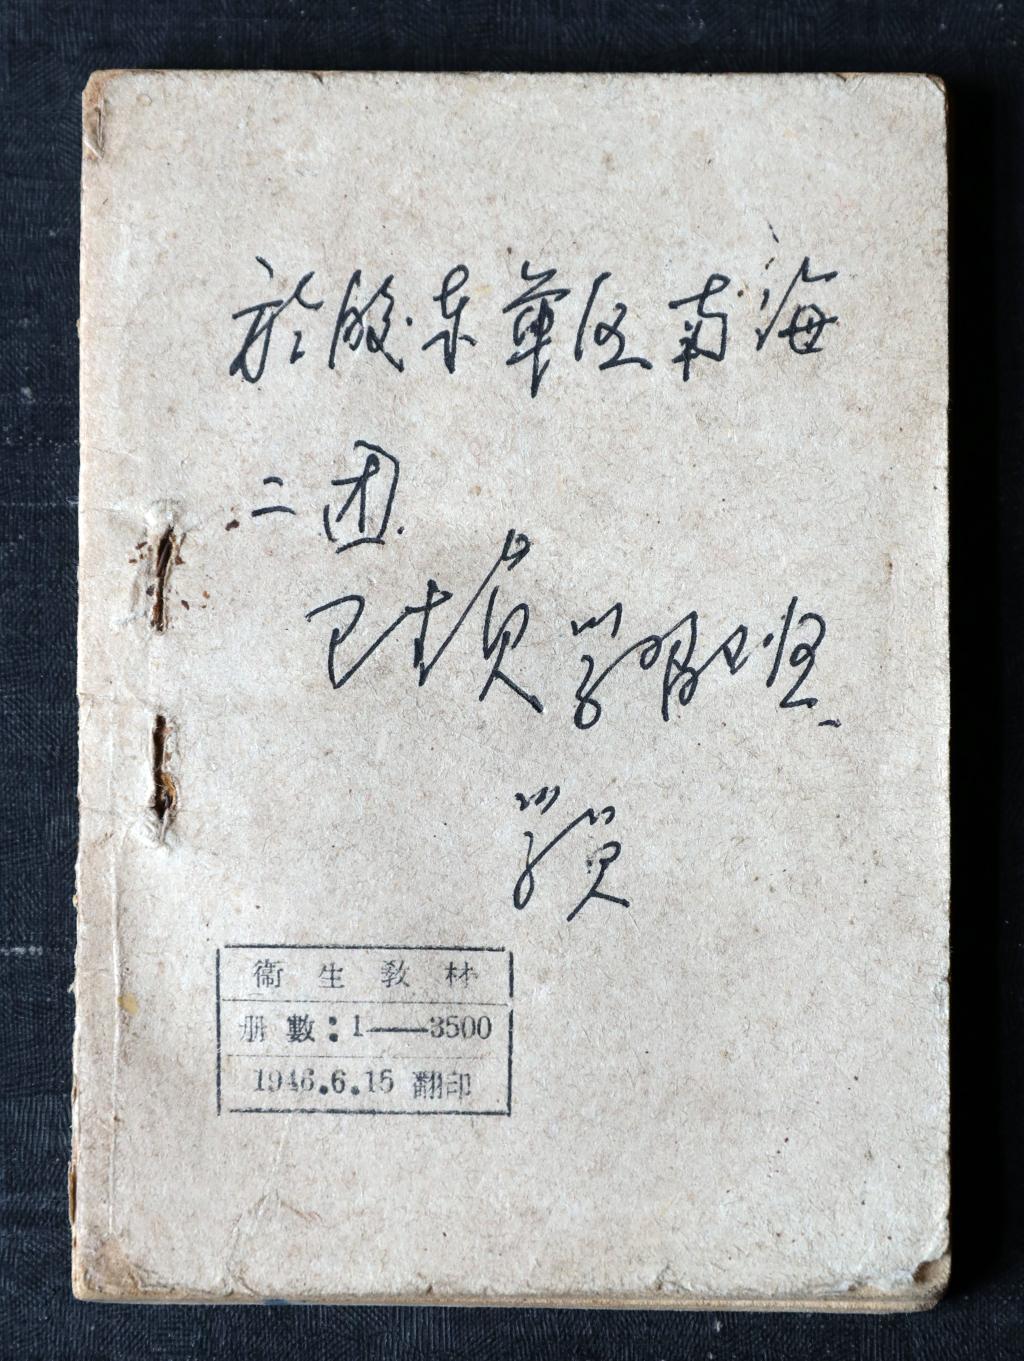 於胶东军区南海
二团.
卫生员学习班
学员
衞生教材
册數：1——3500
1946.6.15 翻印